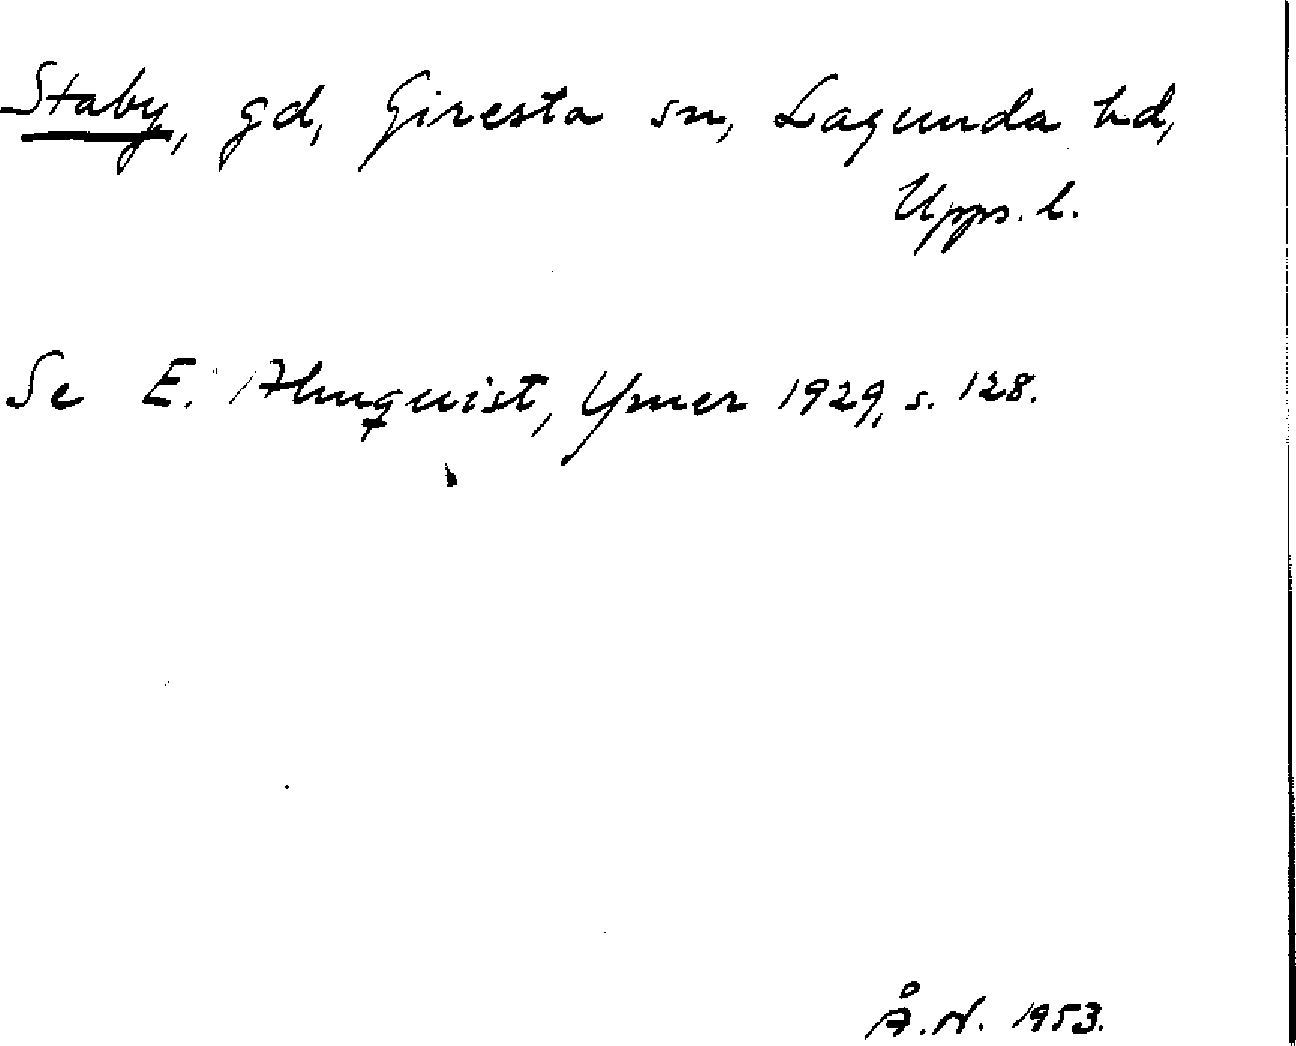 Staby, gd, Giresta sn, Lagunda hd,
Upps. l.
Se E. Almquist, Ymer 1929, s. 128.
Å.N. 1953.